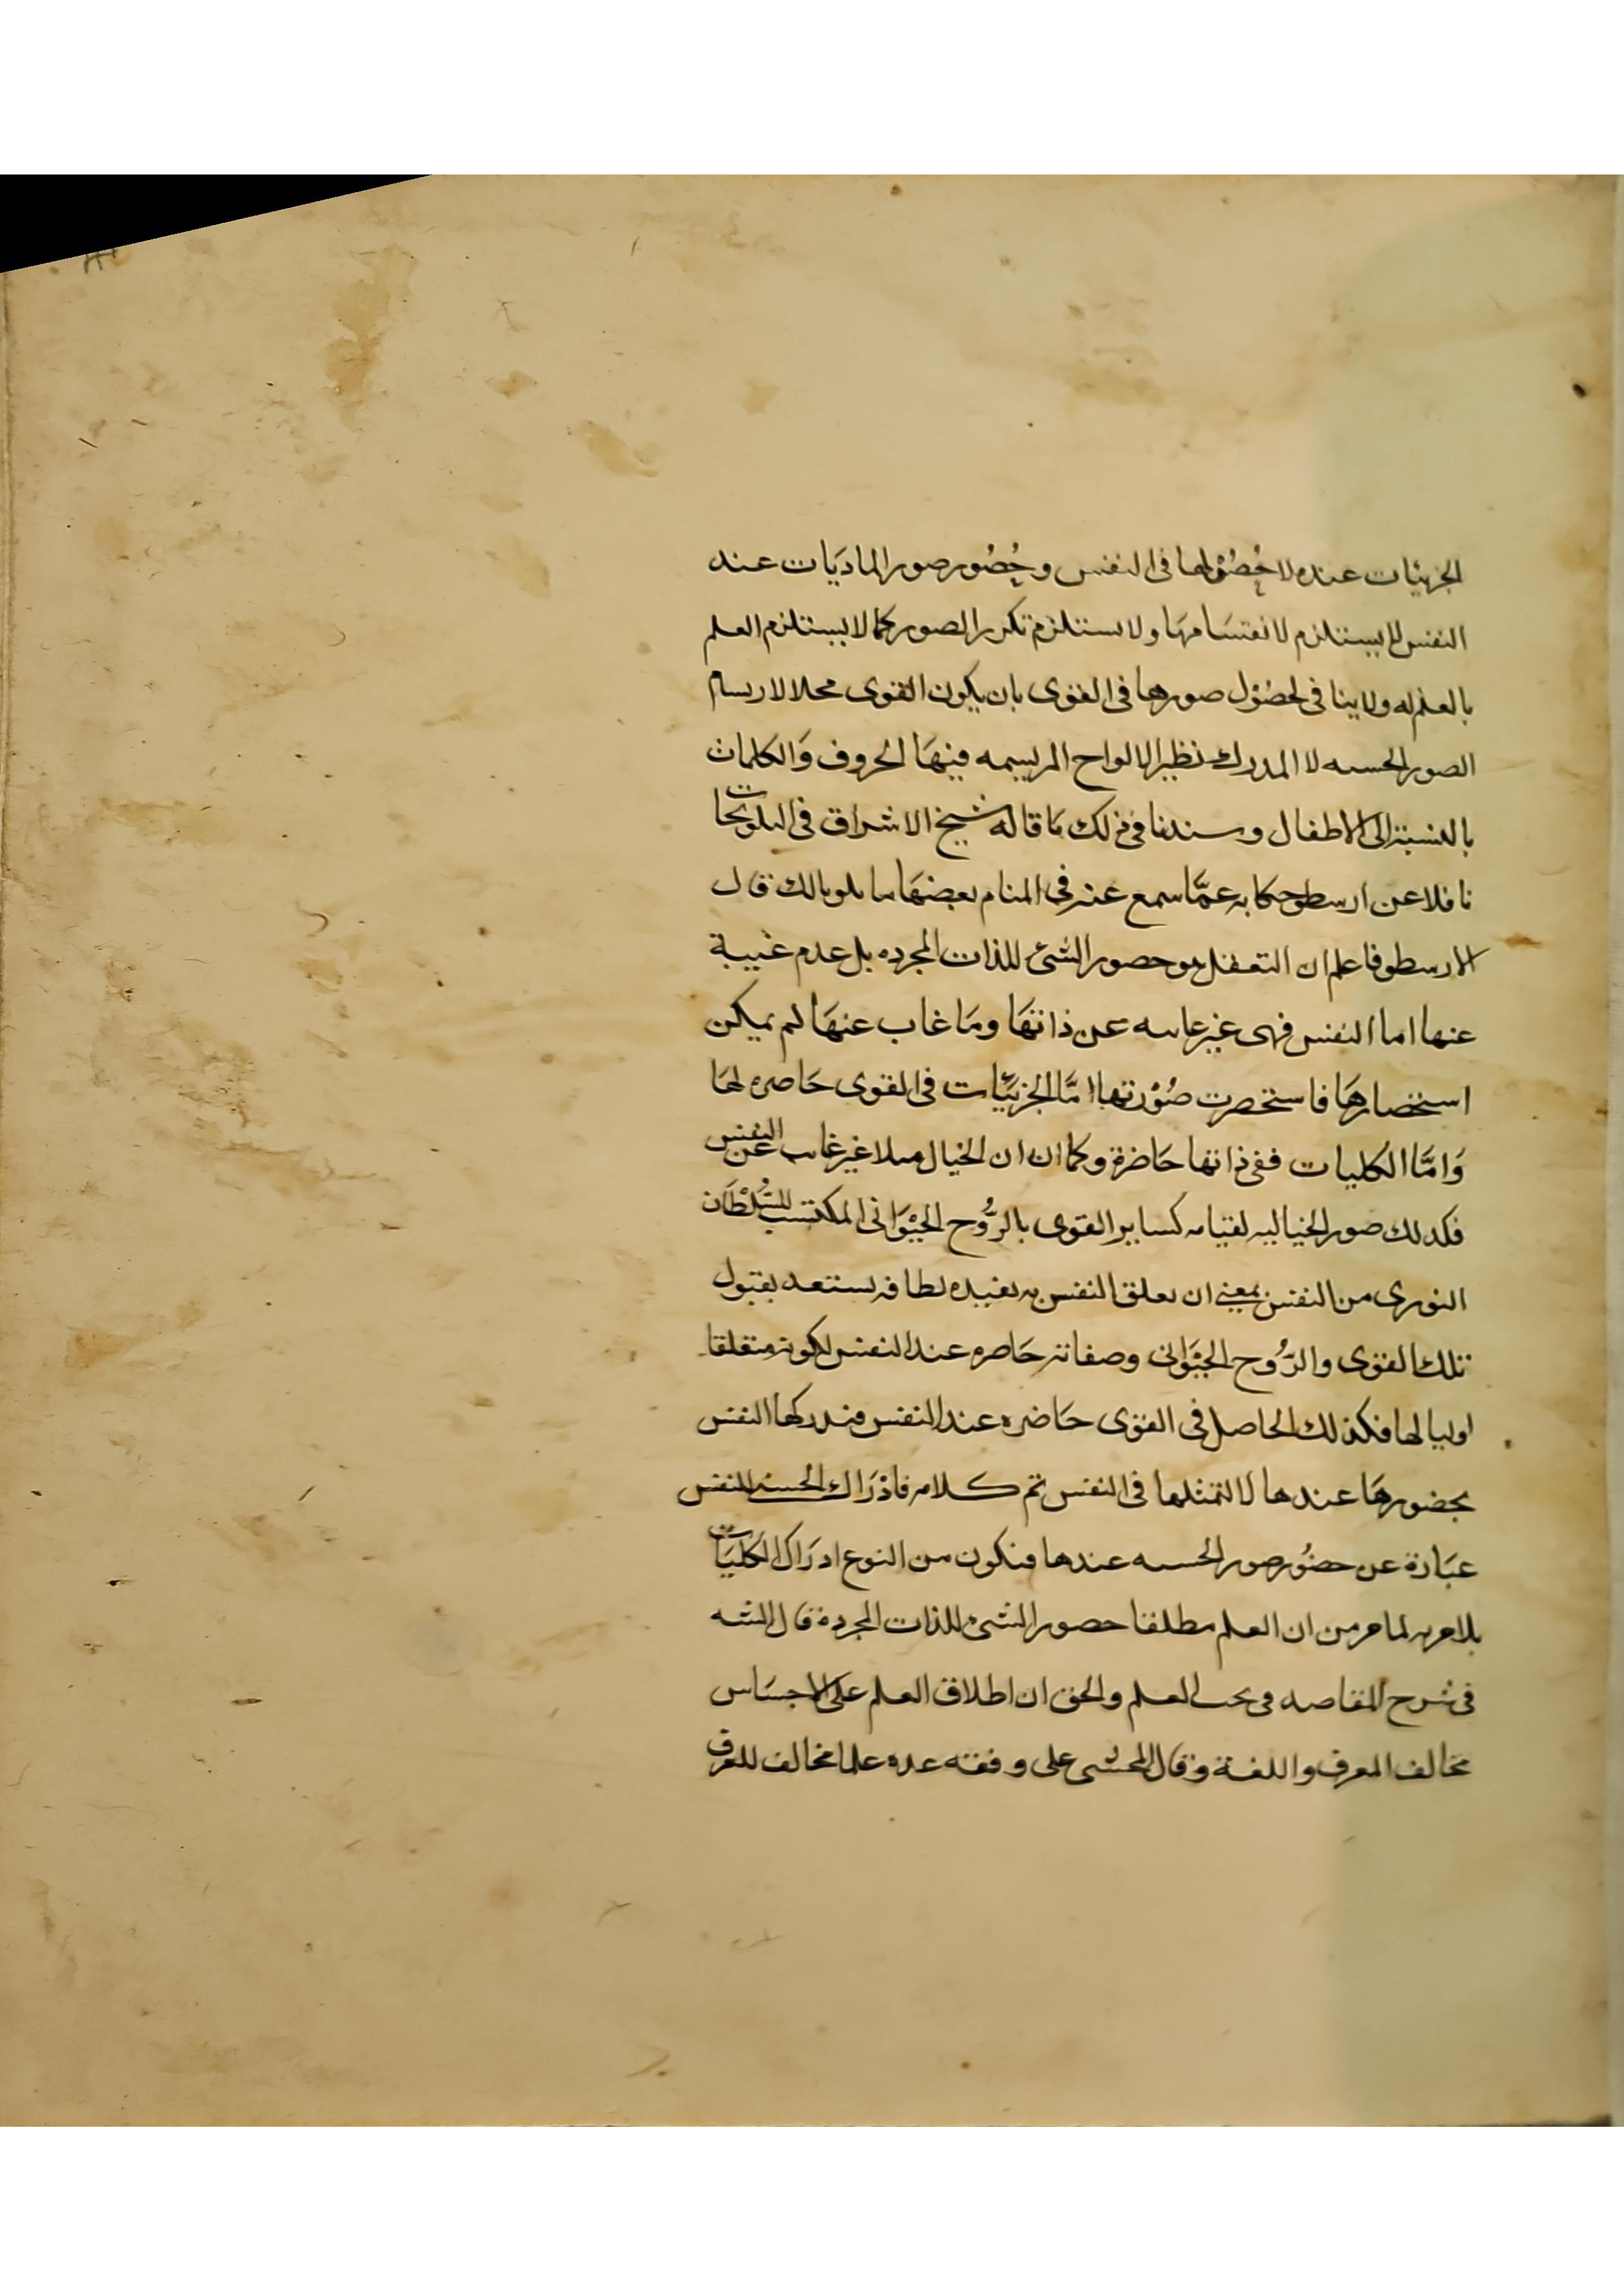 الجزئيات عنده لا حُصُولها فى النفس وحُضُور صور الماديَات عند
النفس لا يستلزم لانقسَامهَا ولا يستلزم تكرر الصور كما لا يستلزم العلم
بالعلم له ولا ينافى لحصُول صورها فى القوى بان يكون القوى محلا لارسام
الصور الحسيه لا المدرك نظير الالواح المرتسمه فيهَا الحروف وَالكلمات
بالنسبة الى الاطفال وسندنا فى ذلك مَا قاله شيخ الاشراق فى التلويحات
ناقلا عن ارسطو حكايه عمَّا سمع عنه فى المنام بعضهَا قال
الارسطو فاعلم ان التعقل هو حضور الشئ للذات المجرده بل عدم غيبة
عنها اما النفس فهى غير غايبه عن ذاتهَا ومَا غاب عنهَا لم يمكن
استحضارهَا فاستحضرت صُوْرتها امَّا الجزئيَّات فى القوى حَاضره لهَا
وَامَّا الكليات ففى ذاتها حَاضرة وكما ان ان الخيال مثلا غير غايب عن النفس
فكذلك صور الخياليه لقيامه كساير القوى بالرُّوح الحَيْوَانى المكتسب للسُّلْطَان
النورى من النفس بمعنى ان تعلق النفس به يفيده لطافه يستعد بقبول
تلك القوى والرُّوح الحيْوَانى وصفاته حَاضره عند النفس لكونه متعلقا
اوليا لها فكذلك الحاصل فى القوى حَاضره عند النفس فيدركها النفس
بحضورهَا عندها لا لتمثلها فى النفس تم كلامه فادْرَاك الحسى للنفس
عبَارة عن حضُور صور الحسيه عندها فتكون من النوع ادرَاك الكليَات
بلا مريه لما مر من ان العلم مطلقا حضور الشئ للذات المجرده قال الشه
فى شرح المقاصد فى بحث العلم والحق ان اطلاق العلم على الاحسَاس
مخالف العرف واللغة وقال المحشى على وفقه عده علما مخالف للعرف